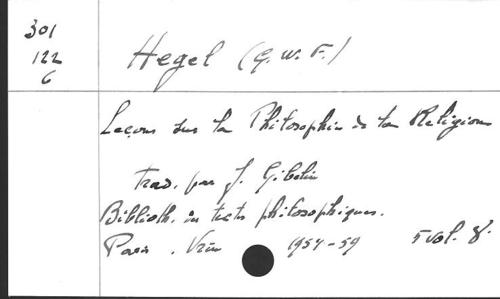 301
122
6
Hegel (G. W. F.)
Leçons sur la Philosophie de la Religion
Trad. par J. Gibelin
Biblioth. des textes philosophiques.
Paris . Vrin 1954-59 5 vol. 8°.